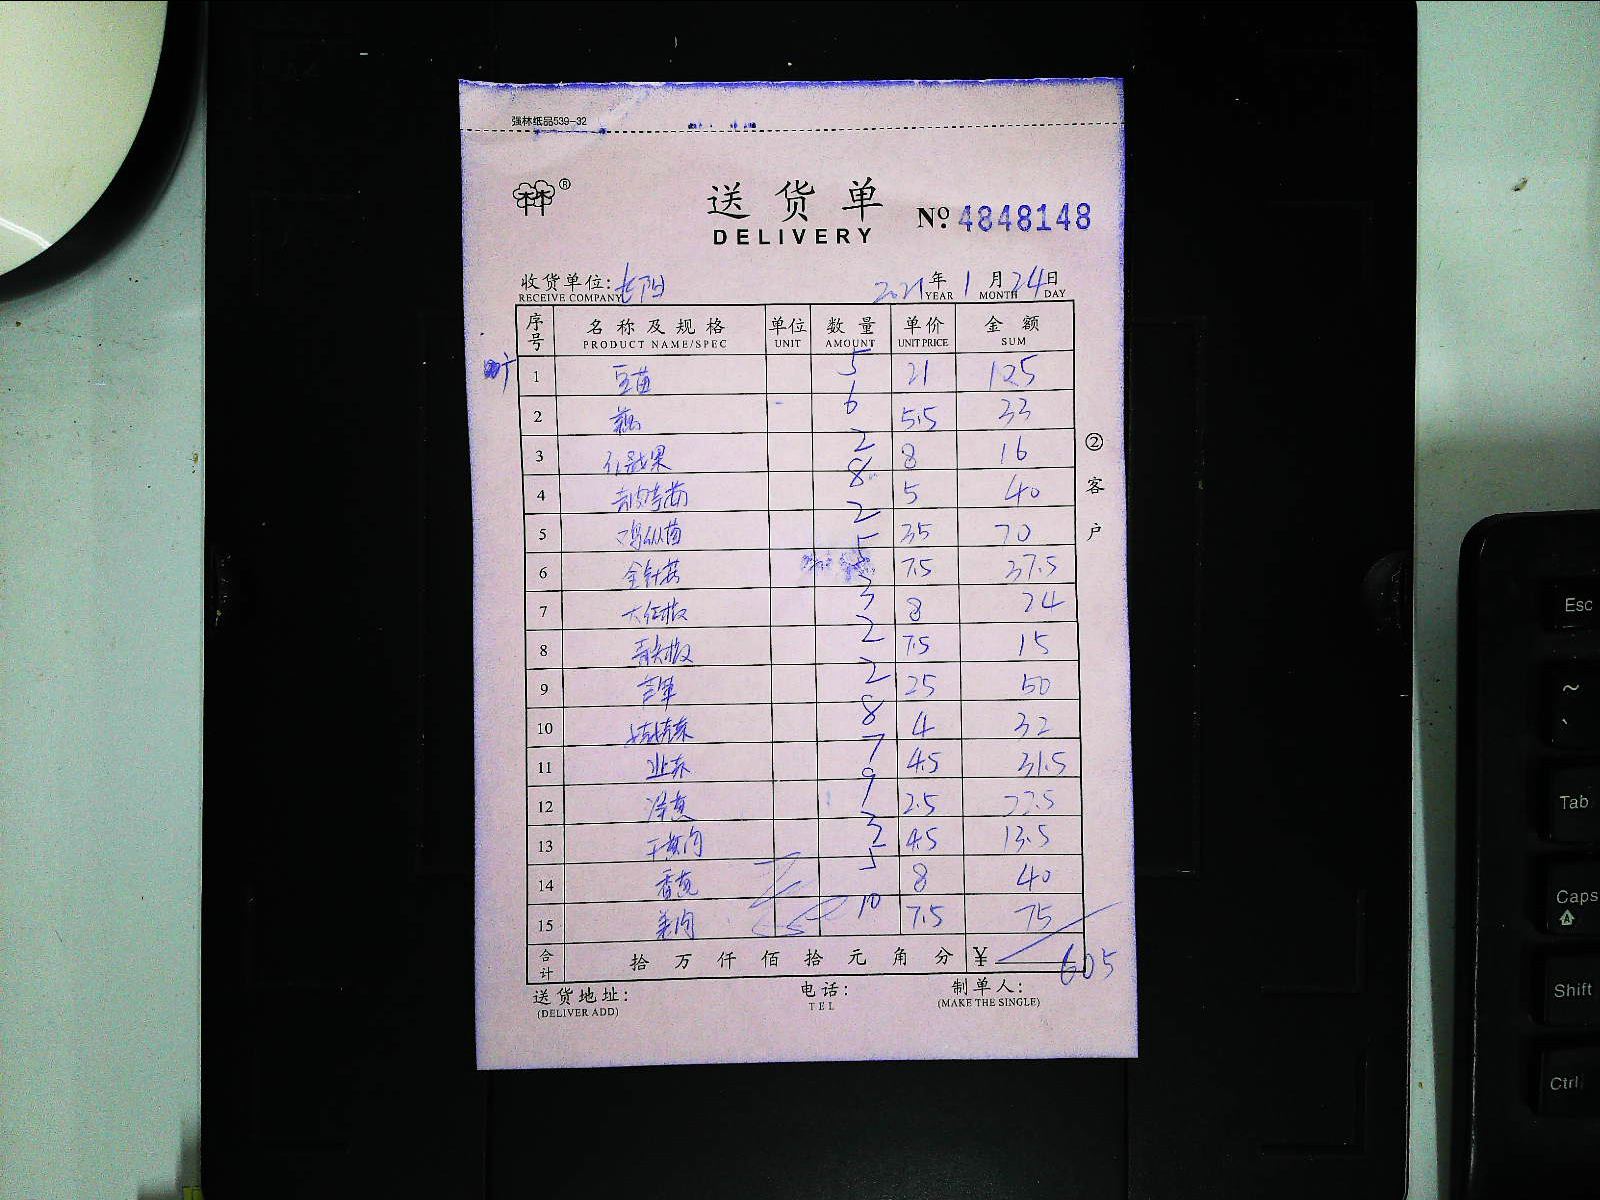 强林纸品539-32
林®
送货单
DELIVERY
No. 4848148
收货单位: 长阳 2021年 1月 24日
RECEIVE COMPANY YEAR MONTH DAY
序号 名称及规格 单位 数量 单价 金额
PRODUCT NAME/SPEC UNIT AMOUNT UNIT PRICE SUM
1 豆苗 5 21 105
2 藕 6 5.5 33
3 8 16
4 8 5 40
5 鸡纵菌 2 35 70
6 金针菇 5 7.5 37.5
7 大红椒 3 8 24
8 青尖椒 2 7.5 15
9 2 25 50
10 8 4 32
11 7 4.5 31.5
12 洋葱 9 2.5 22.5
13 干葱肉 3 4.5 13.5
14 香葱 5 8 40
15 姜肉 10 7.5 75
合计 拾万仟佰拾元角分 ¥ 605
送货地址: 电话: 制单人:
(DELIVER ADD) TEL (MAKE THE SINGLE)
②客户
Esc
~
`
Tab
Caps
A
Shift
Ctrl